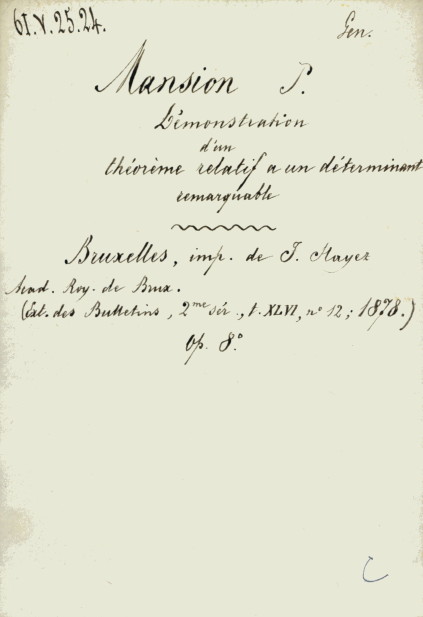 61.V.25.24.
Gen.
Mansion P.
Démonstration
d'un
théorème relatif a un déterminant
remarquable
Bruxelles, imp. de F. Hayez
Acad. Roy. de Brux.
(Ext. des Bulletins, 2me sér., t. XLVI, no 12; 1878.)
Op. 8o